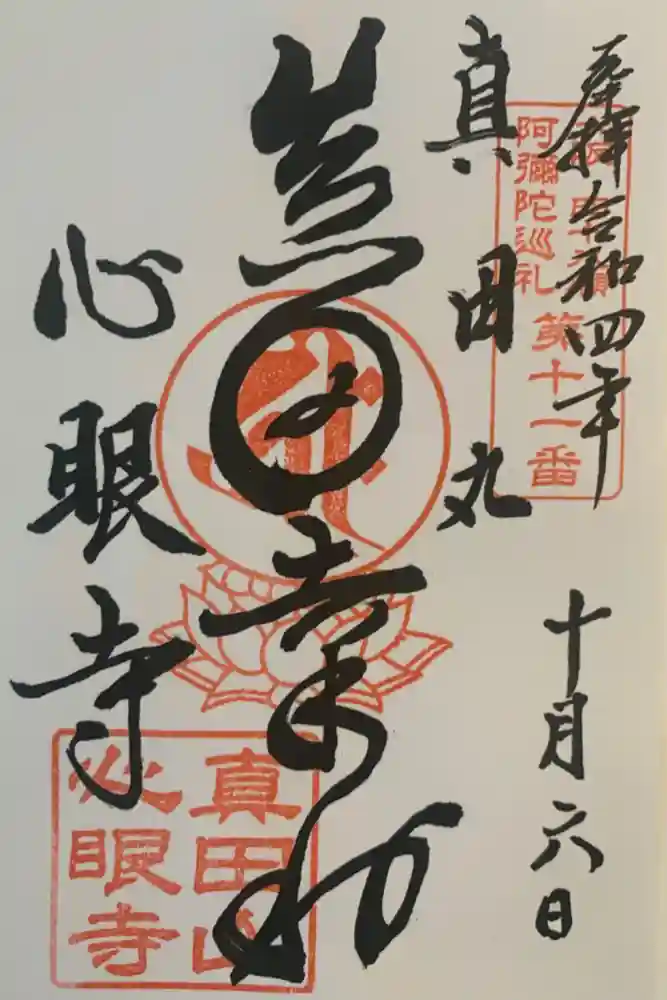 奉拝 令和四年
十月六日
阿彌陀巡礼
第十一番
真田丸
真田幸村
心眼寺
真田山
心眼寺